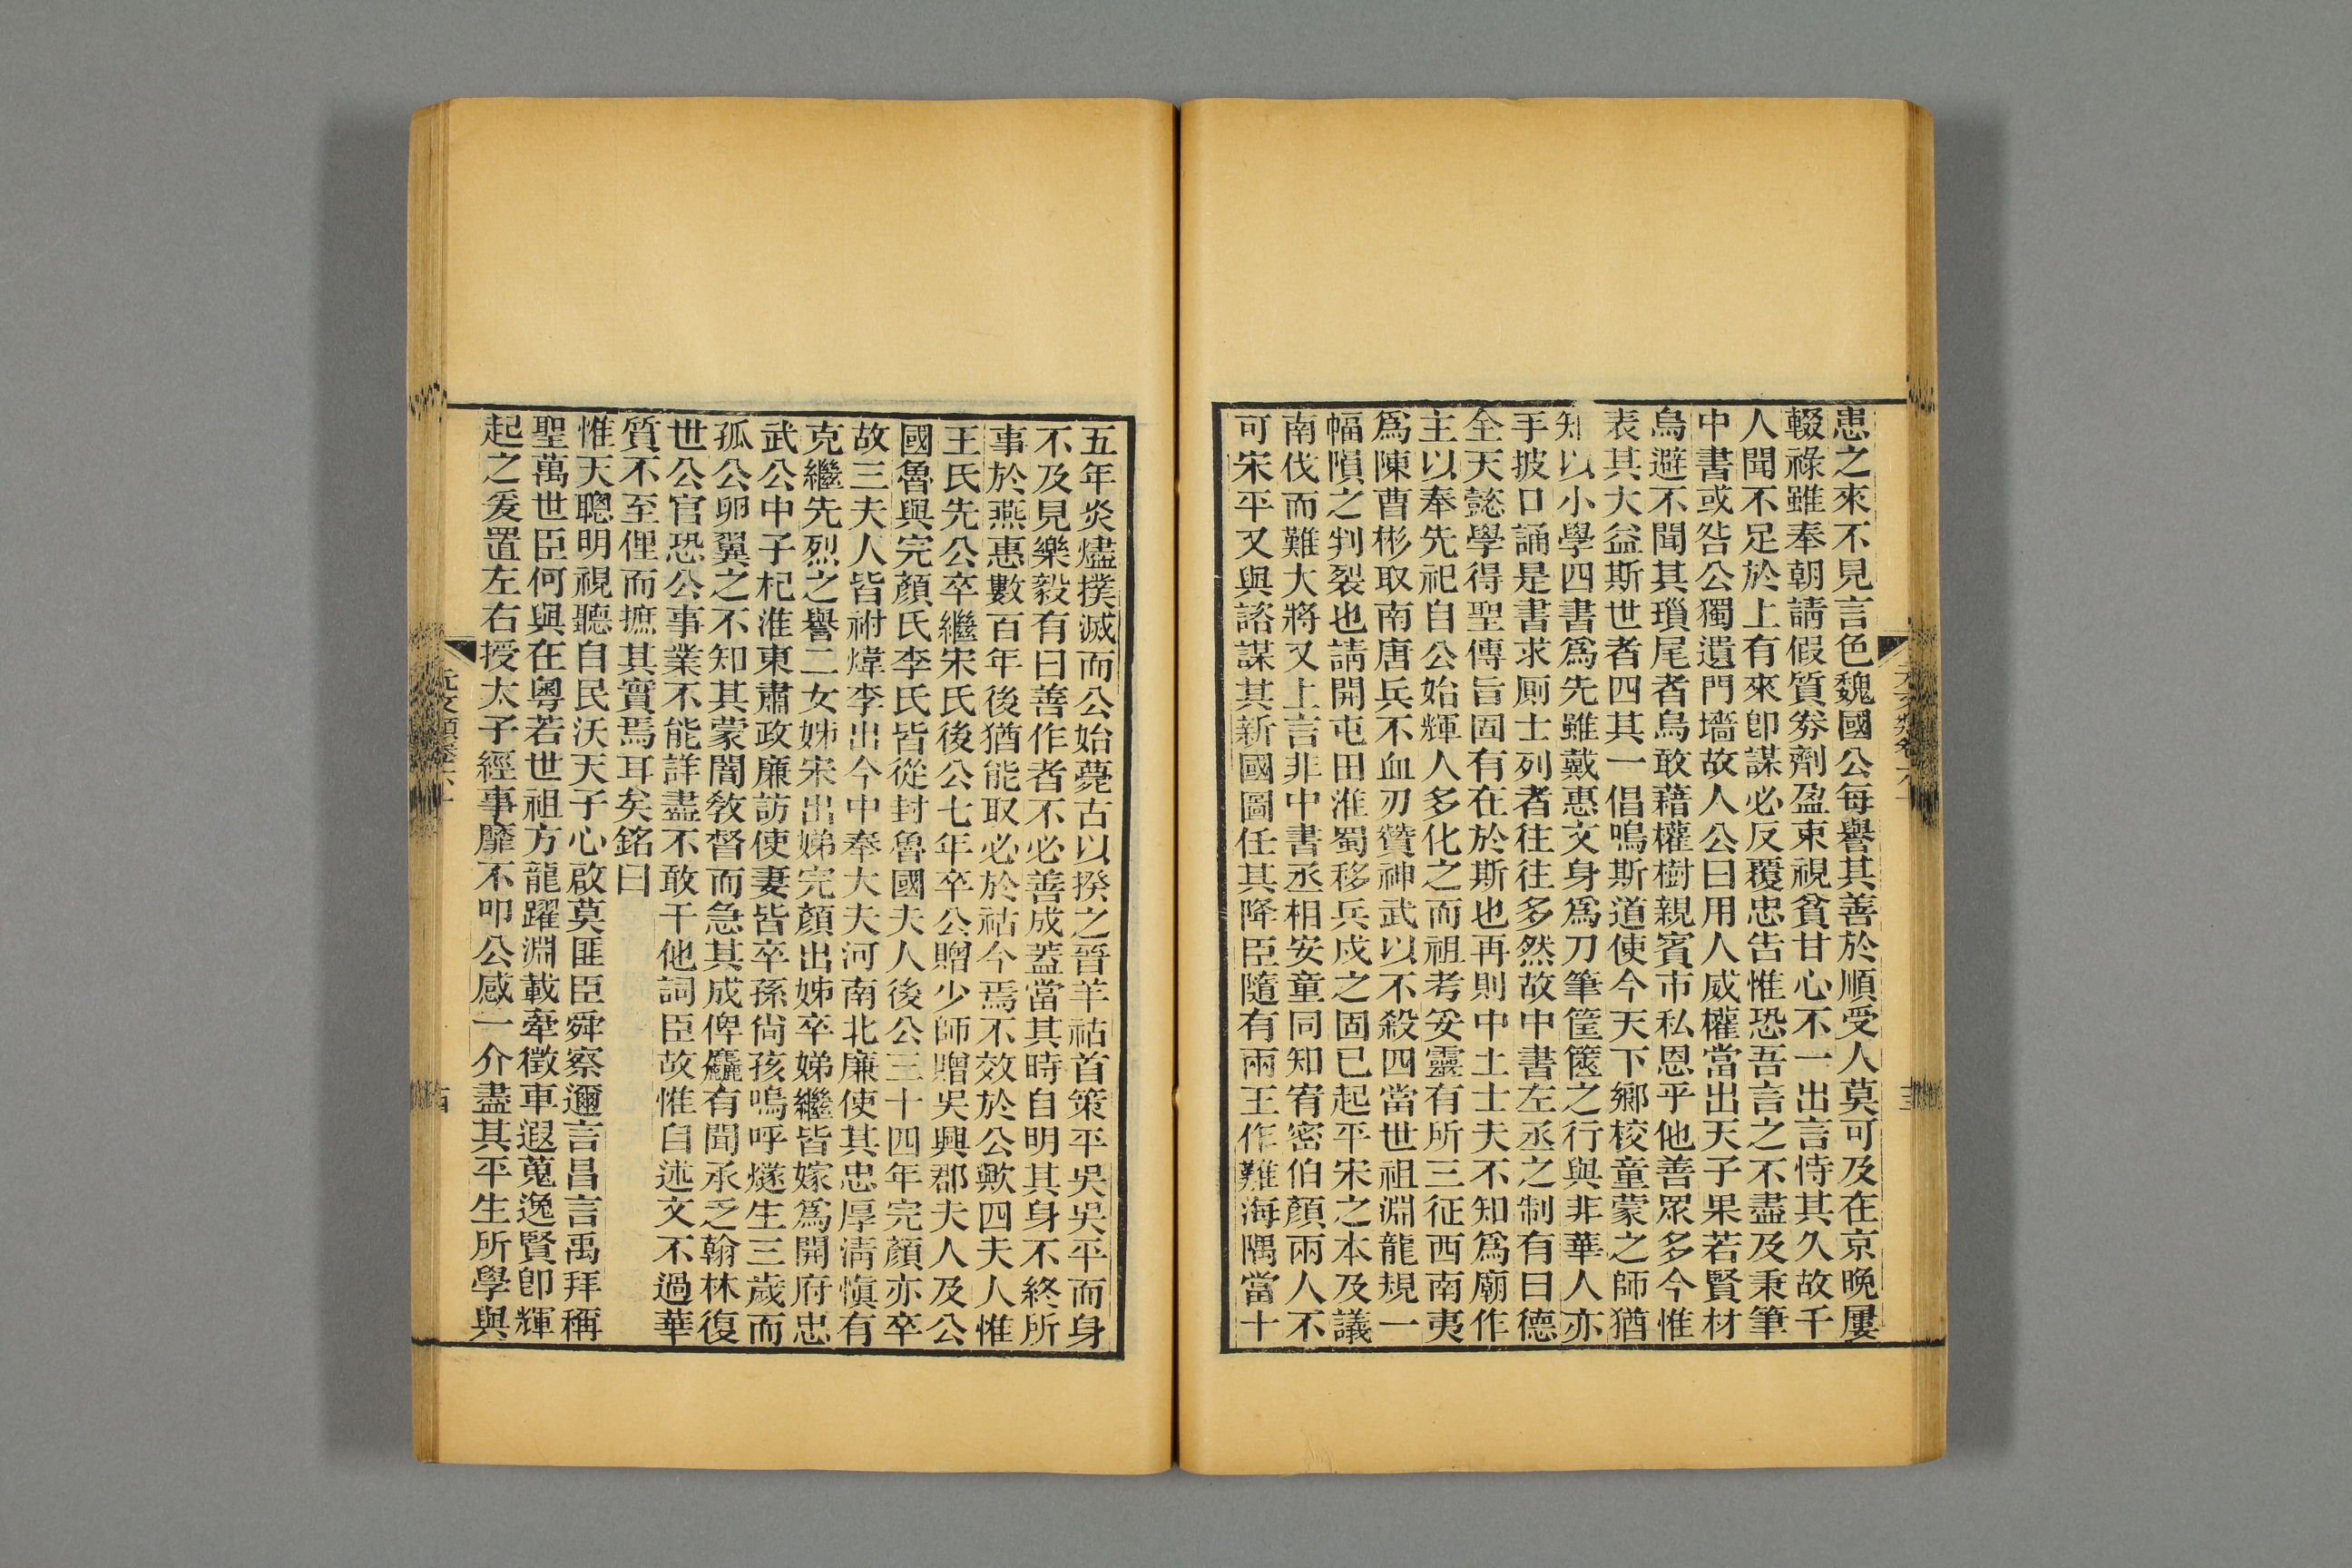 患之來不見言色魏國公每譽其善於順受人莫可及在京晚屢
輟祿雖奉朝請假質劵劑盈束視貧甘心不一出言恃其久故千
人聞不足於上有來卽謀必反覆忠告惟恐吾言之不盡及秉筆
中書或咎公獨遺門墻故人公曰用人威權當出天子果若賢材
烏避不聞其瑣尾者烏敢藉權樹親賓市私恩乎他善眾多今惟
表其大益斯世者四其一倡鳴斯道使今天下鄉校童蒙之師猶
知以小學四書爲先雖戴惠文身爲刀筆筐篋之行與非華人亦
手披口誦是書求厠士列者往往多然故中書左丞之制有曰德
全天懿學得聖傳旨固有在於斯也再則中土士夫不知爲廟作
主以奉先祀自公始輝人多化之而祖考妥靈有所三征西南夷
爲陳曹彬取南唐兵不血刃贊神武以不殺四當世祖淵龍規一
幅隕之判裂也請開屯田淮蜀移兵戍之固已起平宋之本及議
南伐而難大將又上言非中書丞相安童同知宥密伯顏兩人不
可宋平又與諮謀其新國圖任其降臣隨有兩王作難海隅當十
五年炎燼撲滅而公始薨古以揆之晉羊祜首策平吳吳平而身
不及見樂毅有曰善作者不必善成蓋當其時自明其身不終所
事於燕惠數百年後猶能取必於祜今焉不效於公歟四夫人惟
王氏先公卒繼宋氏後公七年卒公贈少師贈吳興郡夫人及公
國魯與完顏氏李氏皆從封魯國夫人後公三十四年完顏亦卒
故三夫人皆祔煒李出今中奉大夫河南北廉使其忠厚淸愼有
克繼先烈之譽二女姊宋出娣完顏出姊卒娣繼皆嫁爲開府忠
武公中子杞淮東肅政廉訪使妻皆卒孫尙孩嗚呼燧生三歲而
孤公卵翼之不知其蒙闇敎督而急其成俾麤有聞承乏翰林復
世公官恐公事業不能詳盡不敢干他詞臣故惟自述文不過華
質不至俚而摭其實焉耳矣銘曰
惟天聰明視聽自民沃天子心啟莫匪臣舜察邇言昌言禹拜稱
聖萬世臣何與在粤若世祖方龍躍淵載牽徵車遐蒐逸賢卽輝
起之爰置左右授太子經事靡不叩公感一介盡其平生所學與